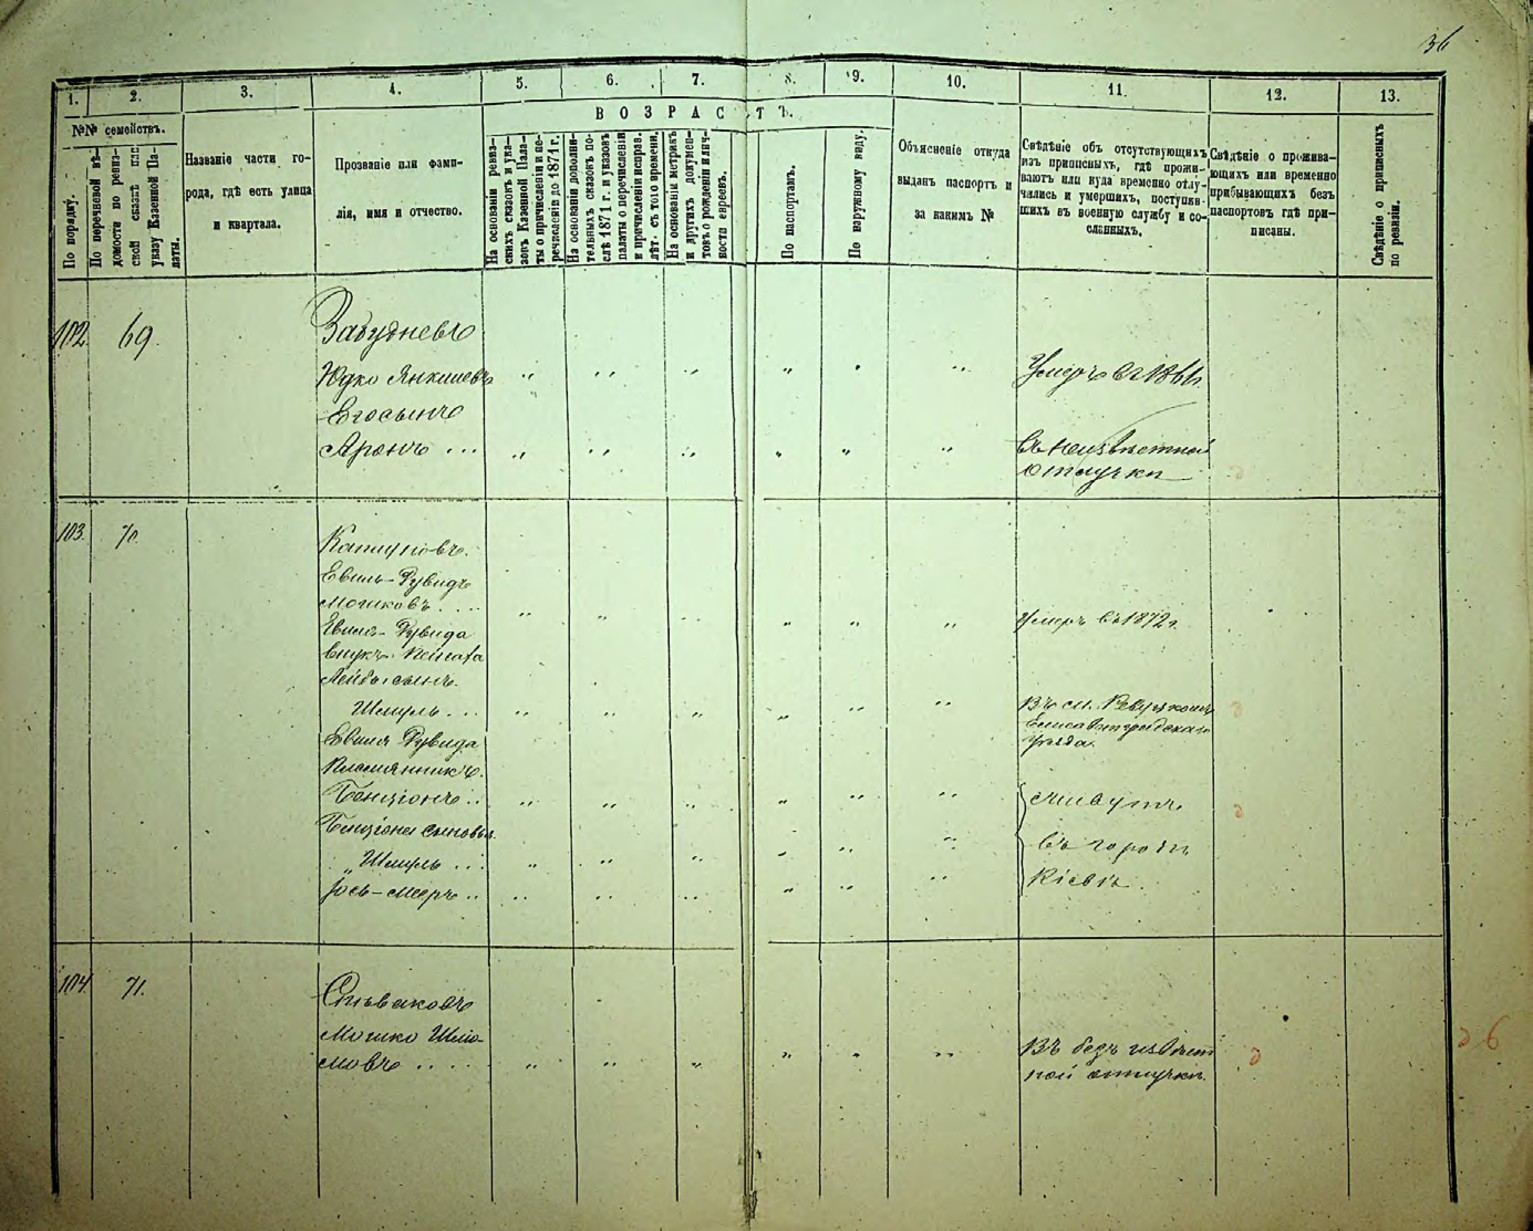 36
1. 2. 3. 4. 5. 6. 7. 8. 9. 10. 11. 12. 13.
№№ семействъ.
По порядку.
По перечневой вѣ-
домости по ревиз-
ской сказкѣ или
указу Казенной Па-
латы.
Названіе части го-
рода, гдѣ есть улица
и квартала.
Прозваніе или фами-
лія, имя и отчество.
ВОЗРАСТЪ.
На основаніи ревиз-
скихъ сказокъ и ука-
зовъ Казенной Пала-
ты о причисленіи и пе-
речисленіи до 1871 г.
На основаніи дополни-
тельныхъ сказокъ по-
слѣ 1871 г. и указовъ
палаты о перечисленіи
и причисленіи исправ.
лѣт. съ того времени.
На основаніи метрикъ
и другихъ докумен-
товъ о рожденіи и лич-
ности евреевъ.
По паспортамъ.
По наружному виду.
Объясненіе откуда
выданъ паспортъ и
за какимъ №
Свѣдѣніе объ отсутствующихъ
изъ приписныхъ, гдѣ прожи-
ваютъ или куда временно отлу-
чились и умершихъ, поступив-
шихъ въ военную службу и со-
сланныхъ.
Свѣдѣніе о прожива-
ющихъ или временно
прибывающихъ безъ
паспортовъ гдѣ при-
писаны.
Свѣдѣніе о приписныхъ
по ревизіи.
102. 69. Забудневъ
Юдко Янкилевъ " " " " " " Умеръ въ 1861
Его сынъ
Аронъ ... " " " " " " Въ неизвѣстной
отлучки
103. 70.
Евель-Рувидъ
Мошковъ .... " " " " " " Умеръ въ 1872 г.
Евеля-Рувида
внукъ
Лейбы сынъ
Шмуль ... " " " " " " Въ м.
Елисаветградскаго
уѣзда.
Евеля Рувида
племянникъ.
Бенціонъ .. " " " " " " живутъ
Бенціона сыновья
" Шмуль ... " " " " " " въ городѣ
Іось-Мееръ .. " " " " " " Кіевѣ.
104 71. Спеваковъ
Мошко Шлио-
мовъ .... " " " " " " Въ безъизвѣст
ной отлучки.